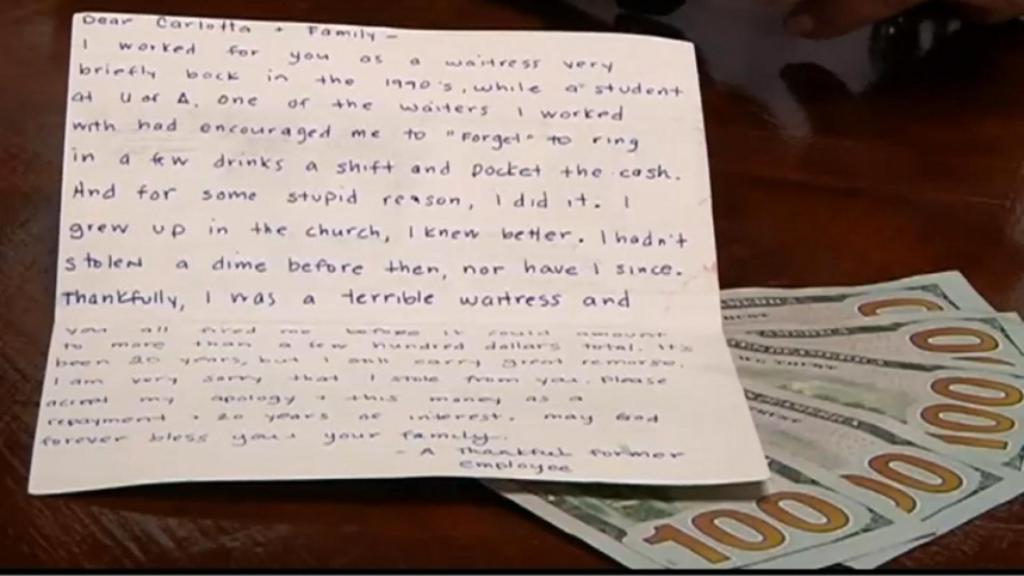 Dear Carlotta + Family -
I worked for you as a waitress very
briefly back in the 1990's, while a student
at U of A. One of the waiters I worked
with had encouraged me to "Forget" to ring
in a few drinks a shift and pocket the cash.
And for some stupid reason, I did it. I
grew up in the church, I knew better. I hadn't
stolen a dime before then, nor have I since.
Thankfully, I was a terrible waitress and
you all fired me before it could amount
to more than a few hundred dollars total. It's
been 20 years, but I still carry great remorse.
I am very sorry that I stole from you. Please
accept my apology + this money as a
repayment + 20 years of interest. may God
forever bless you + your family.
- A Thankful Former
Employee
100
100
100